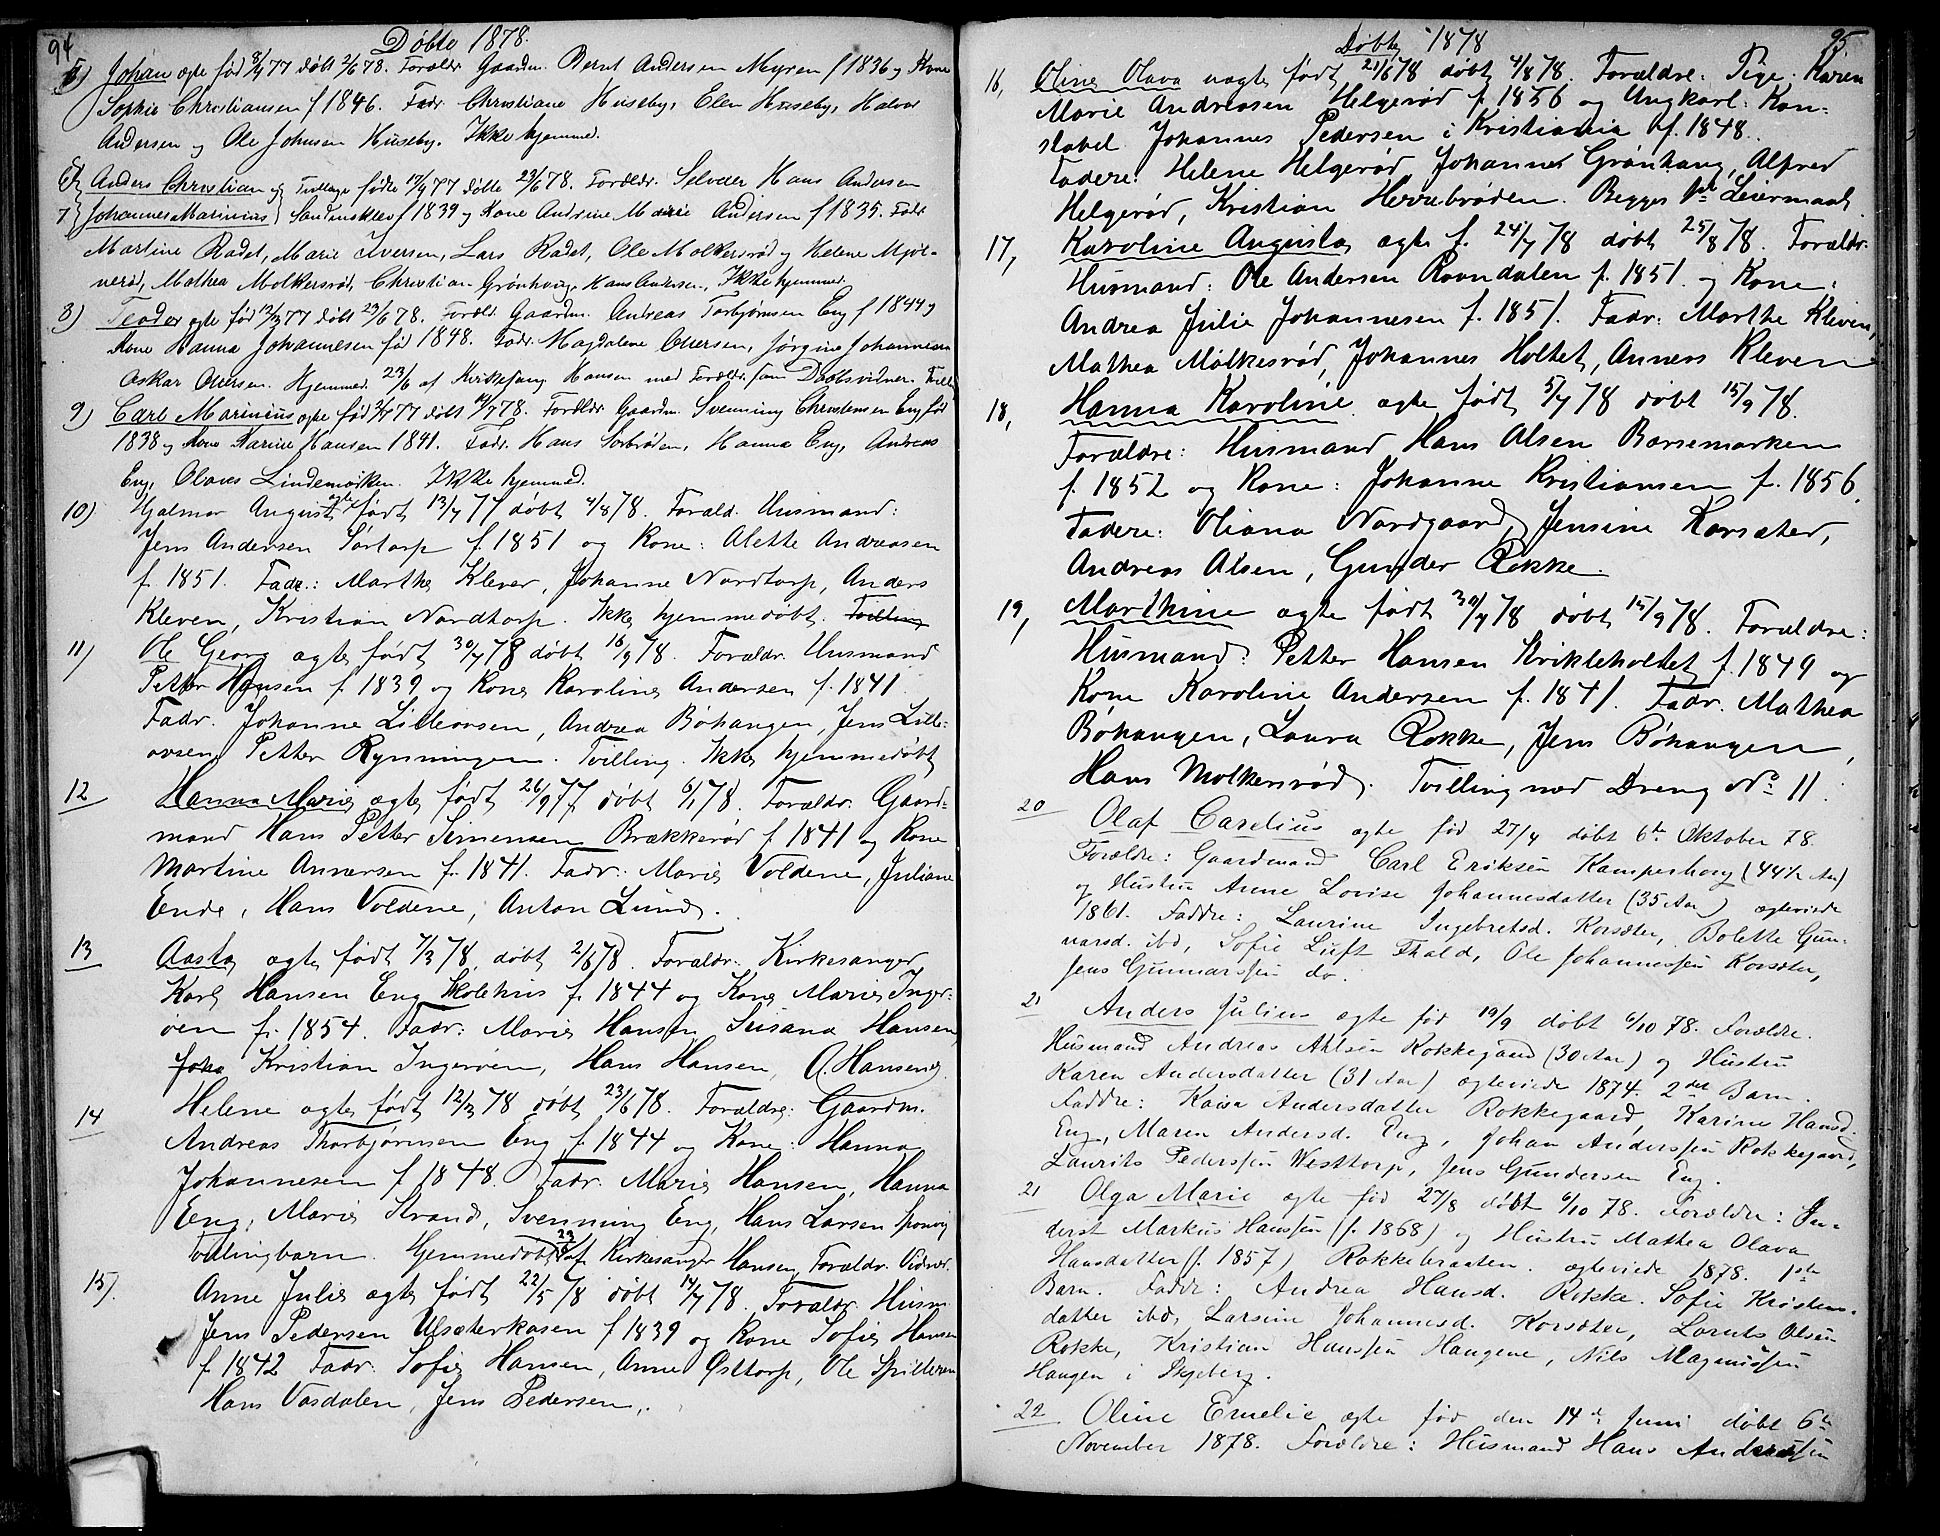 94
Døbte 1878.
5) Johan ægte fød 8/4 77 døbt 2/6 78. Forældr. Gaardm. Bernt Andersen Myren f 1836 og Kone
Sophie Christiansen f 1846. Fadr. Christiane Huseby, Elen Huseby, Halvor
Andersen og Ole Johnsen Huseby. Ikke hjemmed.
6) Anders Christian og Tvillinge fødte 17/9 77 døbte 23/6 78. Forældr. Selveier Hans Andersen
7 Johannes Marinius f 1839 og Kone Andrine Marie Andersen f 1835. Fadr
Martine Radet, Marie Iversen, Lars Radet, Ole Molkersrød og Helene Mjøl-
nerød, Mathea Molkersrød, Christian Grønhaug, Hans Andersen, Ikke hjemmed.
8) Teodor ægte fød 12/3 77 døbt 23/6 78. Forældr. Gaardm. Andreas Torbjørnsen Eng f 1844 og
Kone Hanna Johannesen fød 1848. Fadr. Magdalene Ottersen, Jørgine Johannesen
Oskar Ottersen. Hjemmed. 23/6 af Kirkesang. Hansen med Forældr. som Daabsvidner.
9) Carl Marinius ægte fød 3/7 77 døbt 14/7 78. Forældr. Gaardm. Svenning Christensen Eng fød
1838 og Kone Karine Hansen 1841. Fadr. Hans Sorbrøden, Hanna Eng, Andreas
Eng, Olaves Lindemarken. Ikke hjemmed.
10) Hjalmar August ægte født 13/7 77 døbt 4/8 78. Foræld. Husmand:
Jens Andersen Sørtorp f. 1851 og Kone: Alette Andreasen
f. 1851. Fadr.: Marthe Kleven, Johanne Nordtorp, Anders
Kleven, Kristian Nordtorp. Ikke hjemmedøbt. Tvilling
11) Ole Georg ægte født 30/7 78 døbt 16/9 78. Forældr. Husmand
Petter Hansen f. 1839 og Kone Karoline Andersen f. 1841.
Fadr. Johanne Lilleovsen, Andrea Bøhaugen, Jens Lille-
ovsen, Petter Rynningen. Tvilling. Ikke hjemmedøbt
12 Hanna Marie ægte født 26/9 77 døbt 6/1 78. Forældr. Gaard-
mand Hans Petter Simensen Brækkerød f 1841 og Kone
Martine Annersen f. 1841. Fadr. Marie Voldene, Juliane
Ende, Hans Voldene, Anton Lund.
13 Aasta ægte født 7/3 78, døbt 2/6 78. Forældr. Kirkesanger
Karl Hansen Eng Skolehus f. 1844 og Kone Marie Inger-
øen f. 1854. Fadr: Marie Hansen Susana Hansen
Joha Kristian Ingerøen, Hans Hansen, A. Hansen.
14 Helene ægte født 12/3 78 døbt 23/6 78. Forældre: Gaardm.
Andreas Thorbjørnsen Eng f. 1844 og Kone: Hanna
Johannesen f 1848. Fadr. Marie Hansen, Hanna
Eng, Marie Strand, Svenning Eng, Hans Larsen Sponvig
Tvillingbarn. Hjemmedøbt 23/3 af Kirkesanger Hansen, Forældr. Vidner.
15). Anne Julie ægte født 22/5 78 døbt 14/7 78. Forældr. Husm.
Jens Pedersen Ulsæterkasen f 1839 og Kone Sofie Hansen
f. 1842 Fadr. Sofie Hansen, Anne Østtorp, Ole Spilleren
Hans Vasdalen, Jens Pedersen.
Døbte 1878
95
16, Oline Olava uægte født 21/6 78 døbt 4/8 78. Forældre: Pige: Karen
Marie Andreasen Helgerød f. 1856 og Ungkarl: Kon-
stabel Johannes Pedersen i Kristiania f. 1848.
Fadere: Helene Helgerød, Johannes Grønhaug, Alfred
Helgerød, Kristian Herrebrøden. Begges 1ste Leiermaal.
17, Karoline Augusta ægte f. 24/7 78 døbt 25/8 78. Forældr.
Husmand: Ole Andersen Ravndalen f. 1851. og Kone:
Andrea Julie Johannesen f. 1851. Fadr: Marthe Kleven,
Mathea Molkesrød, Johannes Holtet, Anners Kleven
18, Hanna Karoline ægte født 5/7 78 døbt 15/9 78.
Forældre: Husmand Hans Olsen Børsemarken
f. 1852 og Kone: Johanne Kristiansen f. 1856.
Fadere: Oliana Nordgaard, Jensine Korsæter,
Andreas Olsen, Gunder Rokke.
19, Marthine ægte født 30/7 78 døbt 15/9 78. Forældre:
Husmand: Petter Hansen Krikleholtet f. 1849 og
Kone Karoline Andersen f. 1841. Fadr. Mathea
Bøhaugen, Laura Rokke, Jens Bøhaugen,
Hans Molkersrød. Tvilling med Dreng No 11.
20 Olaf Carelius ægte fød 27/4 døbt 6te Oktober 78.
Forældre: Gaardmand Carl Eriksen Kamperhoug (44½ Aar)
og Hustru Anne Lovise Johannesdatter (35 Aar) ægteviede
1861. Faddre: Laurine Ingebretsd. Korsæter, Bolette Gun-
narsd. ibd, Sofie Luft Thald, Ole Johannessen Korsæter,
Jens Gunnarssen do.
21 Anders Julius ægte fød 19/9 døbt 6/10 78. Forældre.
Husmand Andreas Ahlsen Rokkegaard (30 Aar) og Hustru
Karen Andersdatter (31 Aar) ægteviede 1874. 2det Barn.
Faddre: Kaisa Andersdatter Rokkegaard, Karine Hansd.
Eng, Maren Andersd. Eng, Johan Anderssen Rokkegaard,
Laurits Pederssen Westtorp, Jens Gundersen Eng.
21 Olga Marie ægte fød 27/8 døbt 6/10 78. Forældre: In-
derst Markus Hanssen (f. 1868) og Hustru Mathea Olava
Hansdatter (f. 1857) Rokkebraaten. ægteviede 1878. 1ste
Barn. Faddr: Andrea Hansd. Rokke. Sofie Kristens-
datter ibd, Larsine Johannesd. Korsæter, Laruts Olsen
Rokke, Kristian Hanssen Haugene, Nils Magnussen
Haugen i Skjeberg.
22 Oline Emelie ægte fød den 14de Juni døbt 6te
November 1878. Forældre: Husmand Hans Anderssen